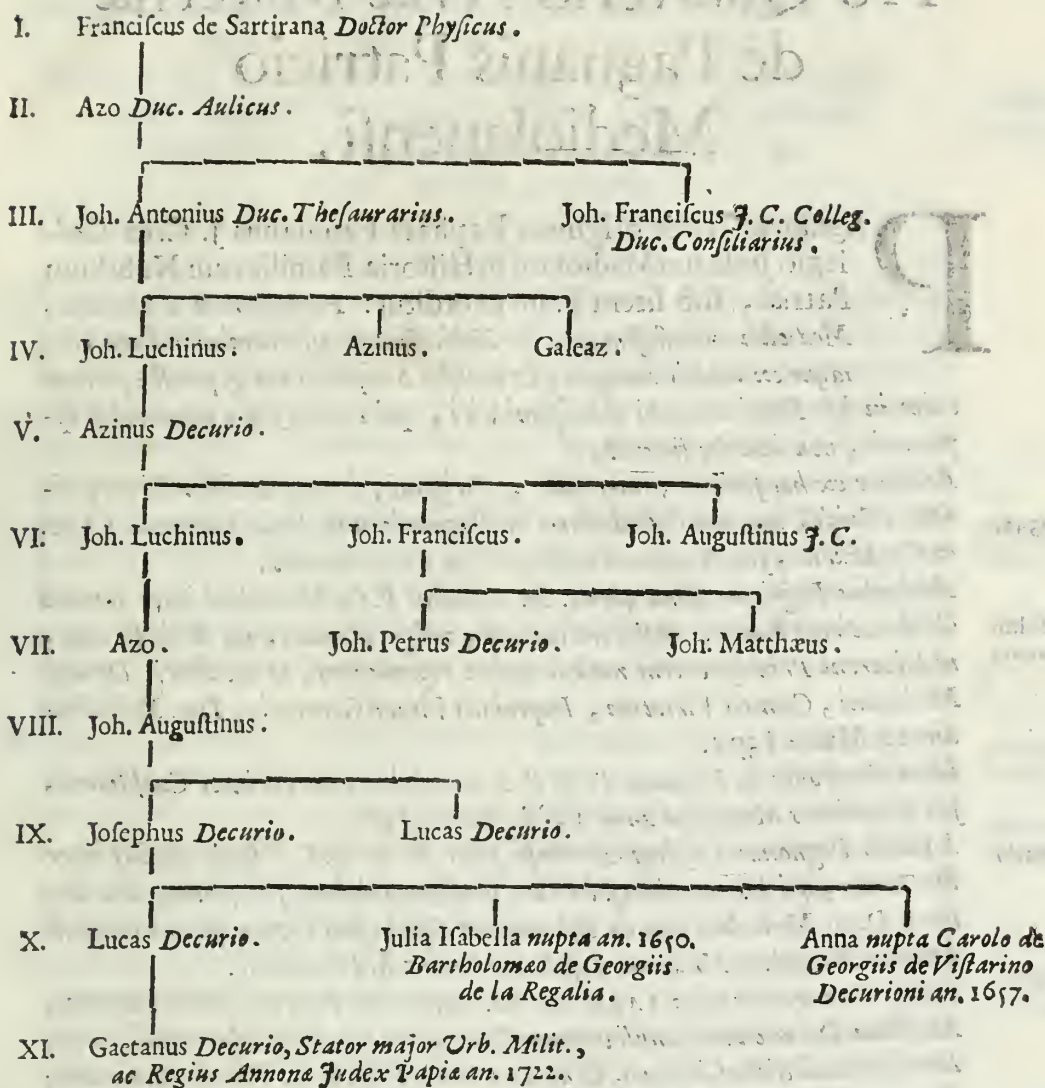 I. Franciſcus de Sartirana Doctor Phyſicus.
II. Azo Duc. Aulicus.
III. Joh. Antonius Duc. Theſaurarius. Joh. Franciſcus J. C. Colleg.
Duc. Conſiliarius.
IV. Joh. Luchinus. Azinus. Galeaz.
V. Azinus Decurio.
VI. Joh. Luchinus. Joh. Franciſcus. Joh. Auguſtinus J. C.
VII. Azo. Joh. Petrus Decurio. Joh. Matthæus.
VIII. Joh. Auguſtinus.
IX. Joſephus Decurio. Lucas Decurio.
X. Lucas Decurio. Julia Iſabella nupta an. 1650. Anna nupta Carolo de
Bartholomæo de Georgiis Georgiis de Viſtarino
de la Regalia. Decurioni an. 1657.
XI. Gaetanus Decurio, Stator major Urb. Milit.,
ac Regius Annonæ Judex Papiæ an. 1722.